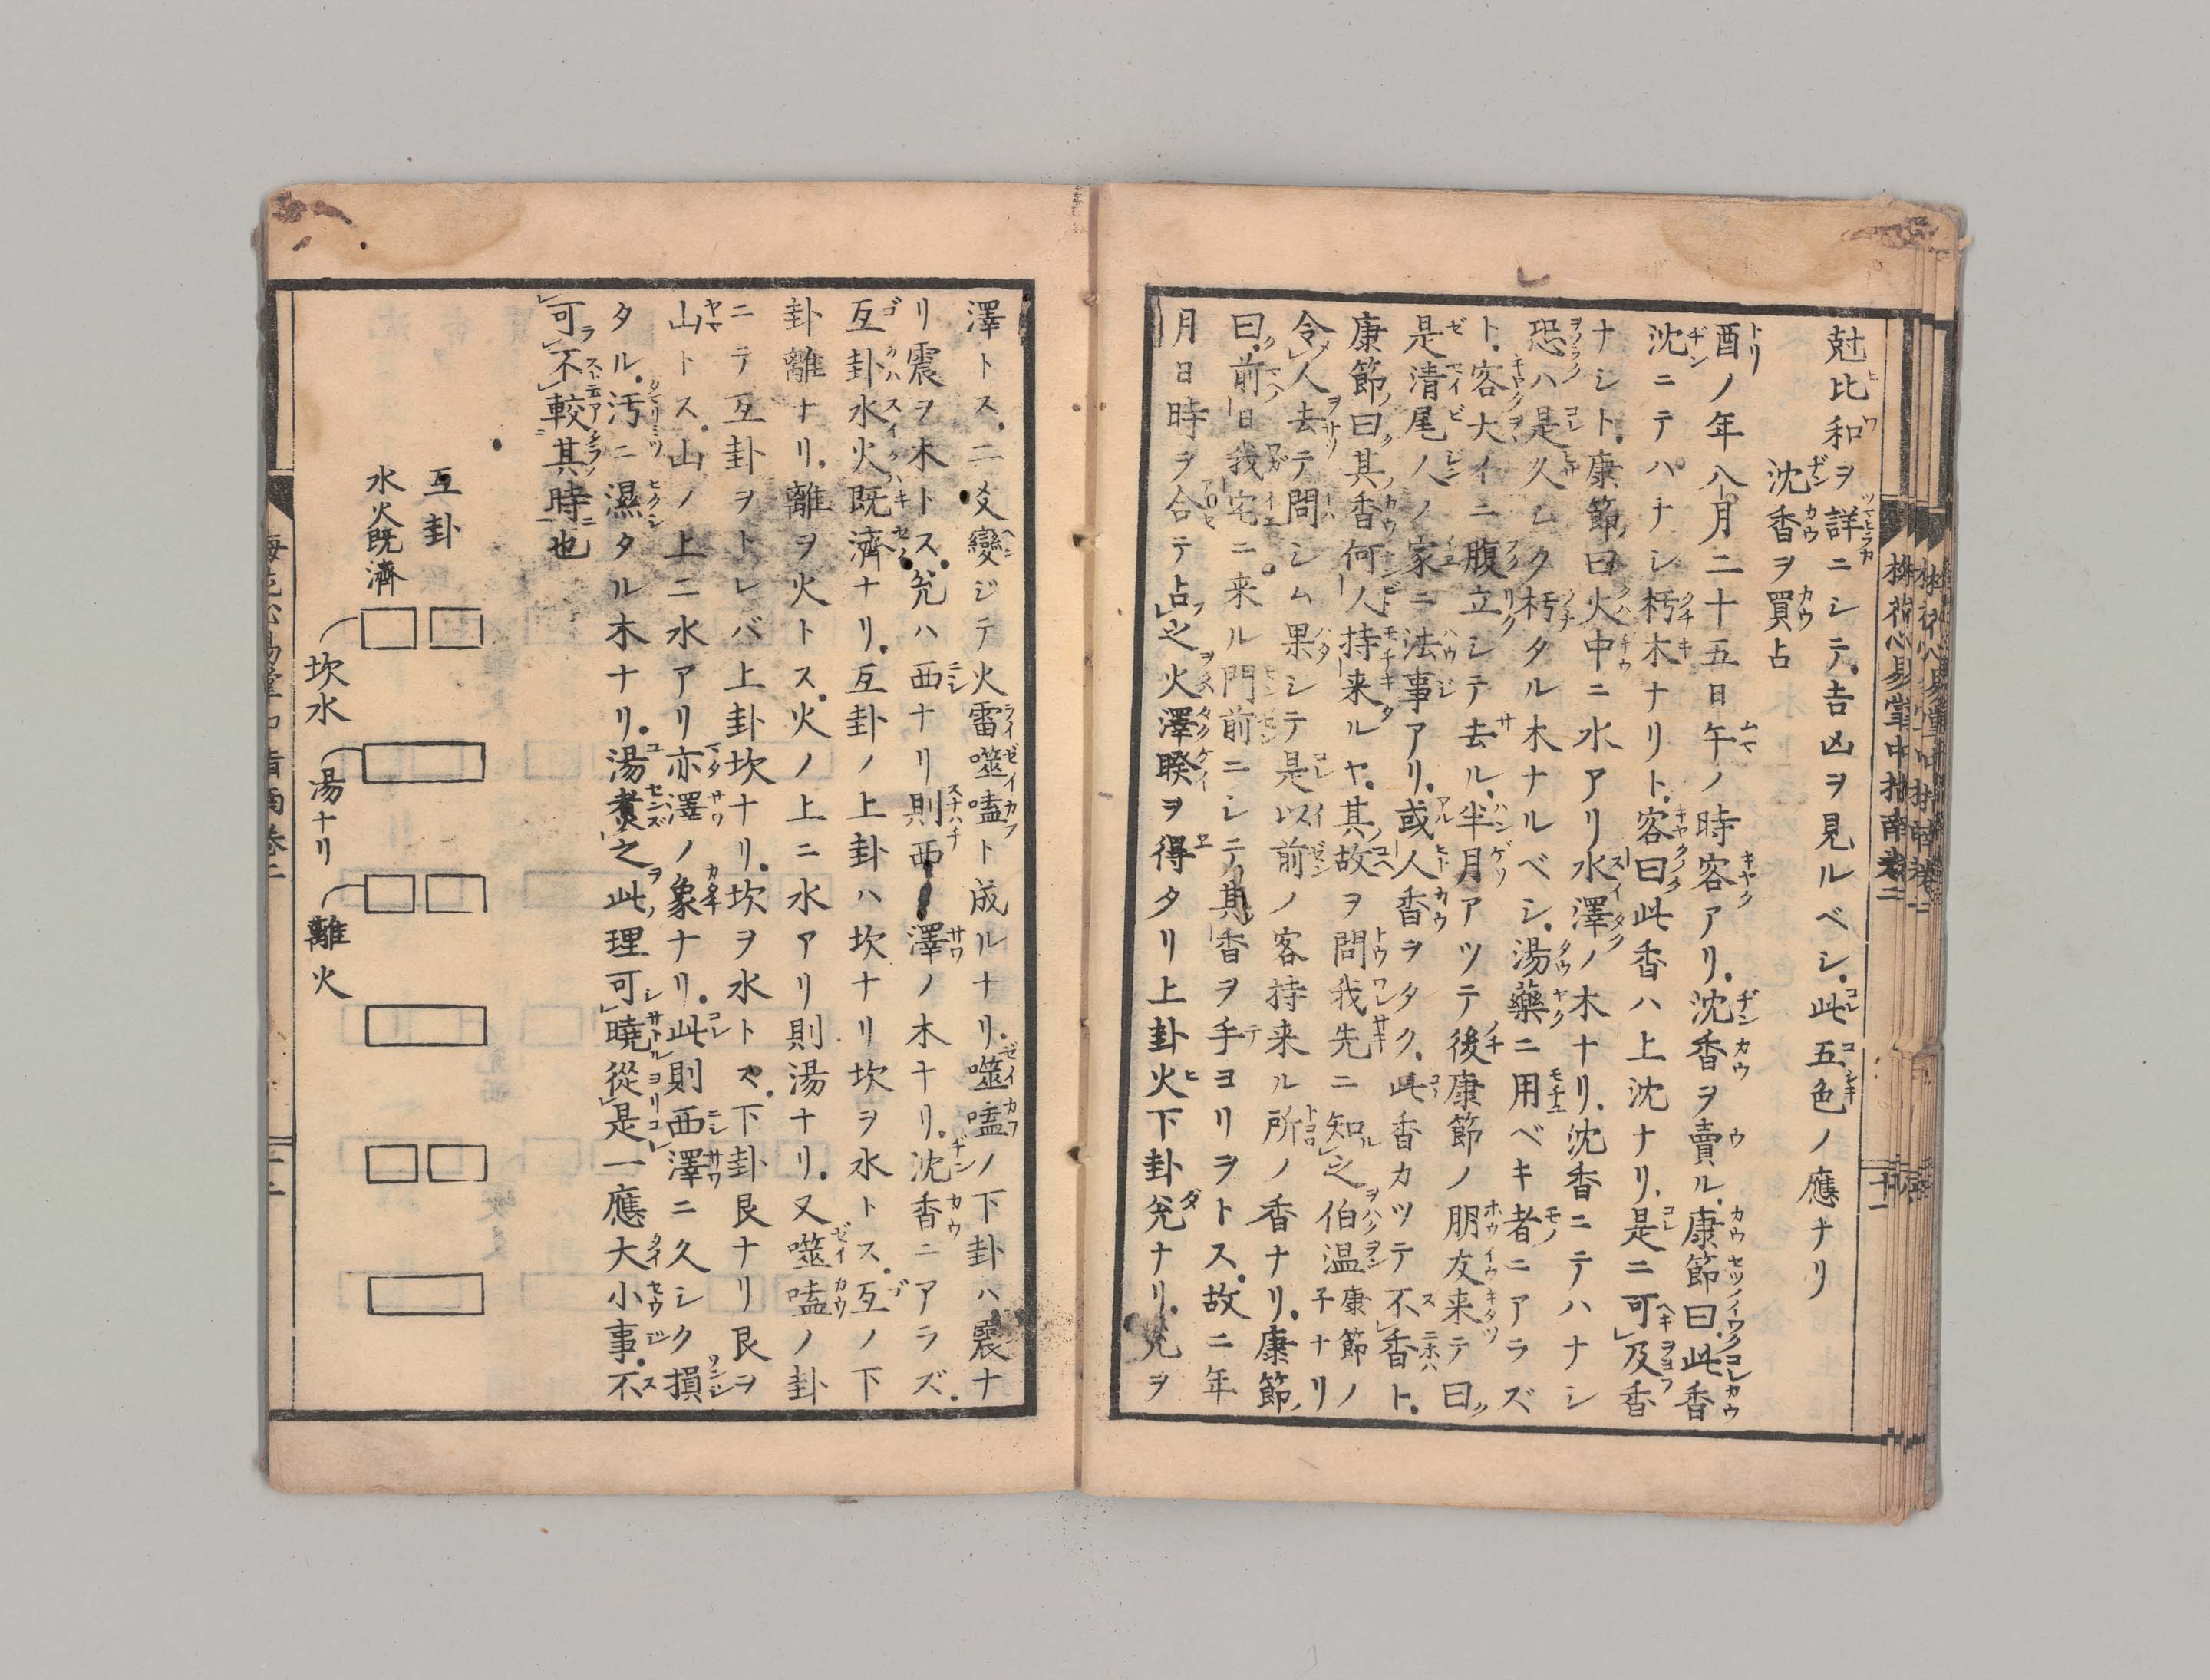 尅比和ヲ詳ニシテ吉凶ヲ見ルベシ此五色ノ應ナリ
沈香ヲ買占
酉ノ年八月二十五日午ノ時客アリ沈香ヲ賣ル康節曰此香
沈ニテハナシ朽木ナリト客曰此香ハ上沈ナリ是ニ可及香
ナシト康節曰火中ニ水アリ水澤ノ木ナリ沈香ニテハナシ
恐ハ是久ムク朽タル木ナルベシ湯藥ニ用ベキ者ニアラズ
ト客大イニ腹立シテ去ル半月アツテ後康節ノ朋友来テ曰
是清尾人ノ家ニ法事アリ或人香ヲタク此香カツテ不香ト
康節曰其香何人持来ルヤ其故ヲ問我先ニ知之伯温康節ノ子ナリ
令人去テ問シム果シテ是以前ノ客持来ル所ノ香ナリ康節
曰前日我宅ニ来ル門前ニシテ其香ヲ手ヨリヲトス故ニ年
月日時ヲ合テ占之火澤睽ヲ得タリ上卦火下卦兊ナリ兊ヲ
澤トス二爻變ジテ火雷噬嗑ト成ルナリ噬嗑ノ下卦ハ震ナ
リ震ヲ木トス兊ハ西ナリ則西澤ノ木ナリ沈香ニアラズ
互卦水火既濟ナリ互卦ノ上卦ハ坎ナリ坎ヲ水トス互ノ下
卦離ナリ離ヲ火トス火ノ上ニ水アリ則湯ナリ又噬嗑ノ卦
ニテ互卦ヲトレバ上卦坎ナリ坎ヲ水トス下卦艮ナリ艮ヲ
山トス山ノ上ニ水アリ亦澤ノ象ナリ此則西澤ニ久シク損
タル汚ニ濕タル木ナリ湯煮之此理可曉從是一應大小事不
可不較其時也
互卦
水火既濟
坎水
湯ナリ
離火